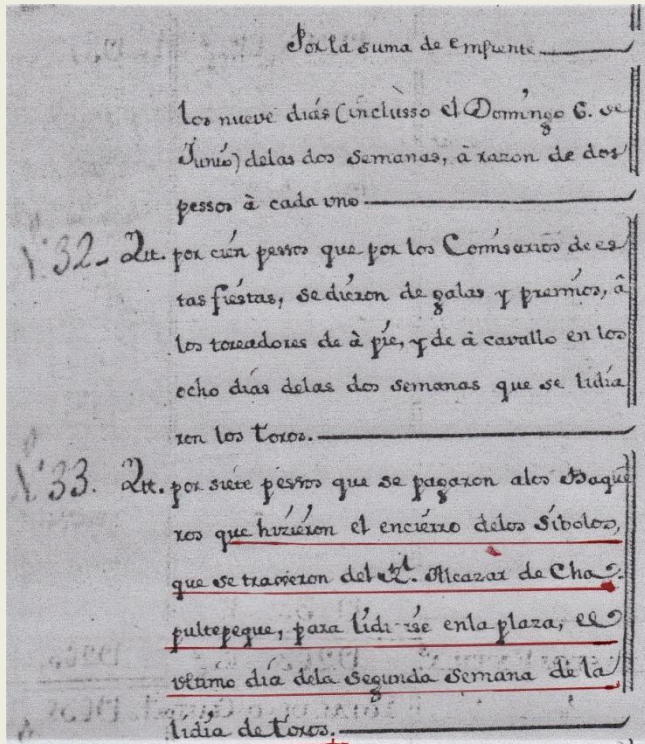 Por la suma de enfrente
los nueve dias (inclusso el Domingo 6. de
Junio) delas dos semanas, à razon de dos
pessos à cada uno
N.º 32. Itt. por cien pessos que por los Comisarios de es
tas fiestas, se dieron de galas y premios, â
los toreadores de à pie, y de à cavallo en los
echo dias delas dos semanas que se lidia
ron los toros.
N.º 33. Itt. por siete pessos que se pagaron alos Baque
ros que hizieron el encierro delos Sibolos,
que se traxeron del Rl. Alcazar de Cha
pultepeque, para lidiarse enla plaza, el
ultimo dia dela segunda semana de la
lidia de toros.